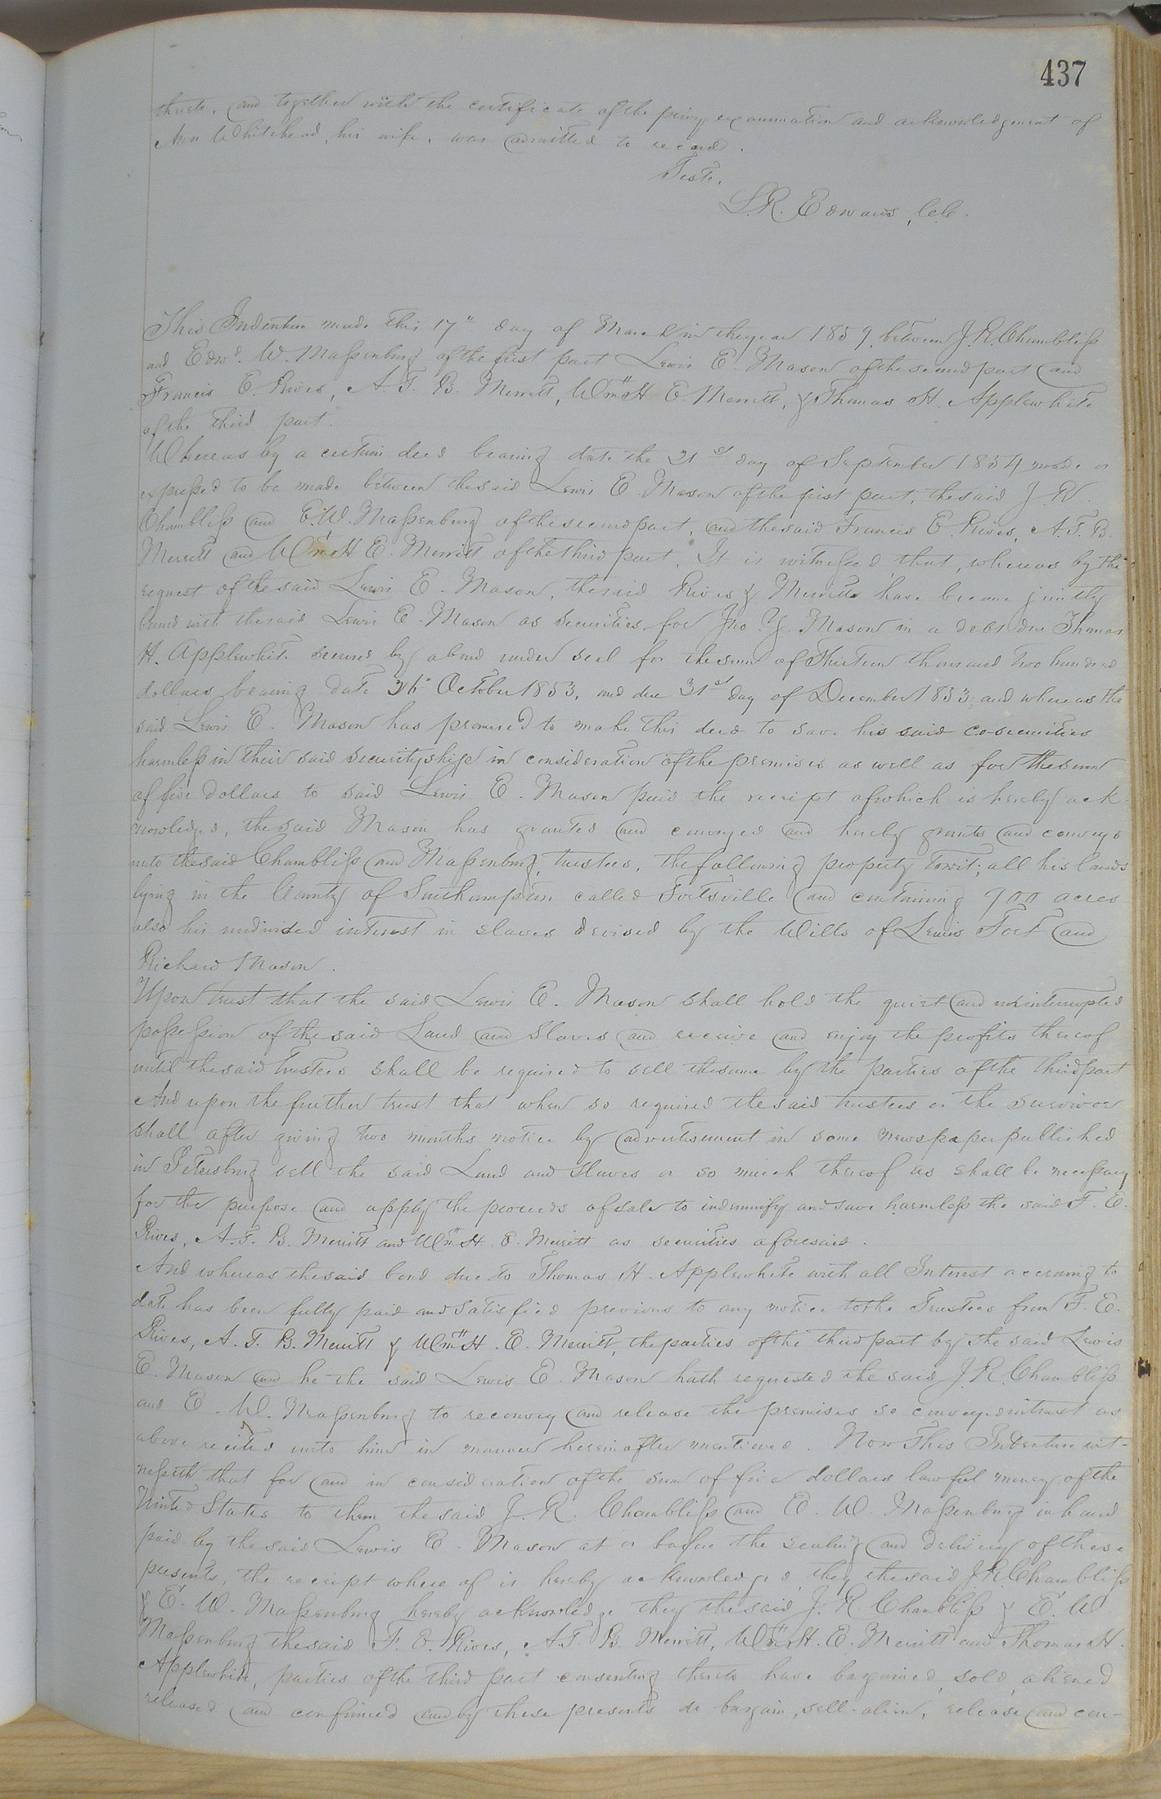 437
thereto, and together with the certificate of the privy examination and acknowledgment of
Ann Whitehead, his wife, was admitted to record.
Teste,
L.R. Edwards, C.C.
This Indenture made this 17" day of March in the year 1859, between J.R. Chambliss
and Edwd. W. Massenburg of the first part Lewis E. Mason of the second part and
Francis E. Rives, A. T. B. Merritt, Wm H. E. Merritt, & Thomas H. Applewhite
of the third part.
Whereas by a certain deed bearing date the 21st day of September 1854 made or
expressed to be made between the said Lewis E. Mason of the first part, the said J. R.
Chambliss and E.W. Massenburg of the second part, and the said Francis E. Rives, A. T. B.
Merritt and Wm H E. Merritt of the third part. It is witnessed that, whereas by the
request of the said Lewis E. Mason, the said Rives & Merritts have become jointly
bound with the said Lewis E. Mason as securities for Jno. Y. Mason in a debt due Thomas
H. Applewhite secured by a bond under seal for the sum of Thirteen thousand two hundred
dollars bearing date October 1853, and due 31st day of December 1853, and whereas the
said Lewis E. Mason has promised to make this deed to save his said co-securities
harmless in their said securityship in consideration of the premises as well as for the sum
of five dollars to said Lewis E. Mason paid the receipt of which is hereby ack-
nowledged, the said Mason has granted and conveyed and hereby grants and conveys
unto the said Chambliss and Massenburg, trustees, the following property towit; all his lands
lying in the County of Southampton called Fortsville and containing 900 acres
also his undivided interest in slaves devised by the Wills of Lewis Fort and
Richard Mason.
Upon trust that the said Lewis E. Mason shall hold the quiet and uninterrupted
possession of the said Land and Slaves and receive and enjoy the profits thereof
until the said trustees shall be required to sell the same by the parties of the third part
And upon the further trust that when so required the said trustees or the survivor
shall after giving two months notice by advertisement in some newspaper published
in Petersburg sell the said Land and Slaves or so much thereof as shall be necessary
for the purpose and apply the proceeds of sale to indemnify and save harmless the said F. E.
Rives, A. T. B. Merritt and Wm H. E. Merritt as securities aforesaid.
And whereas the said bond due to Thomas H. Applewhite with all Interest accruing to
date has been fully paid and satisfied previous to any notice to the Trustees from F. E.
Rives, A. T. B. Merritt & Wm H. E. Merritt, the parties of the third part by the said Lewis
E. Mason and he the said Lewis E. Mason hath requested the said J. R. Chambliss
and E. W. Massenburg to reconvey and release the premises so conveyed in trust as
above recited unto him in manner herein after mentioned. Now This Indenture wit-
nesseth that for and in consideration of the sum of five dollars lawful money of the
United States to them the said J. R. Chambliss and E. W. Massenburg in hand
paid by the said Lewis E. Mason at or before the sealing and delivery of these
presents, the receipt where of is hereby acknowledged, they the said J R Chambliss
& E. W. Massenburg hereby acknowledge they the said J. R Chambliss & E. W
Massenburg the said F. E. Rives, A. T. B. Merritt, Wm H. E. Merritt and Thomas H.
Applewhite, parties of the third part consenting thereto have bargained, sold, aliened
released and confirmed and by these presents do bargain, sell, alien, release and con-